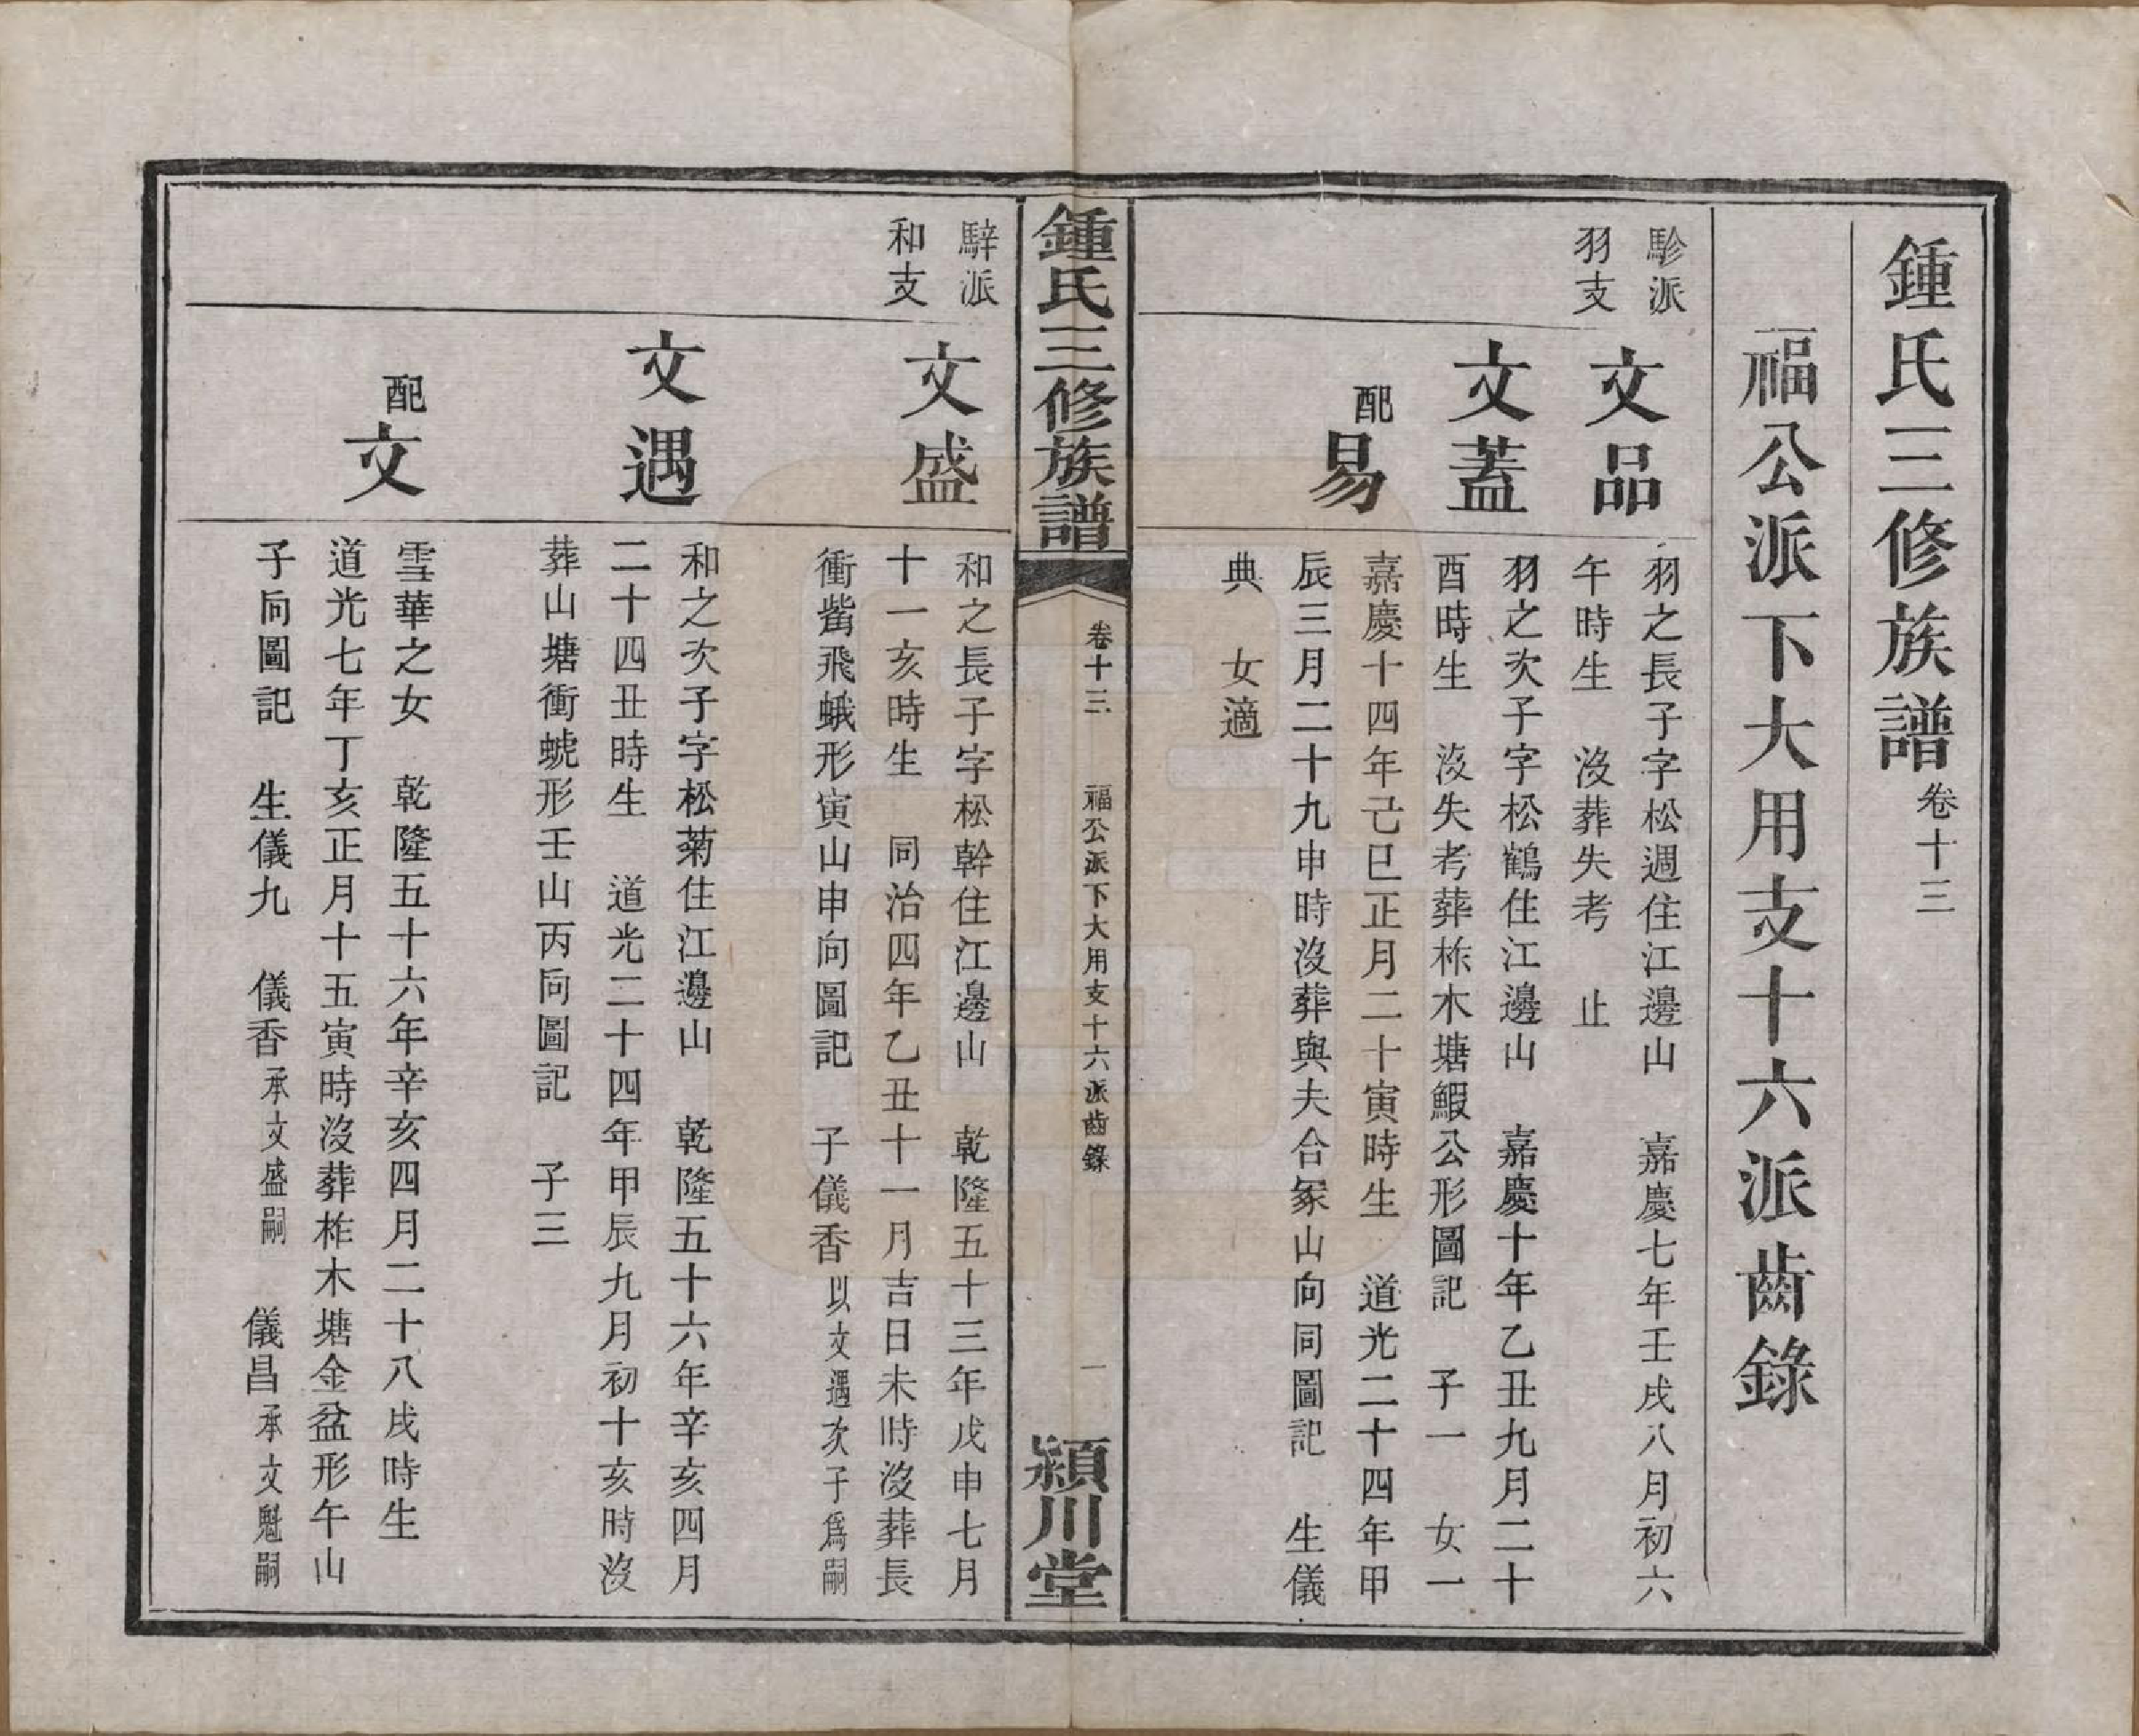 鍾氏三修族譜卷十三
福公派下大用支十六派齒錄
駗派
羽支
文品
羽之長子字松週住江邊山 嘉慶七年壬戌八月初六
午時生 沒葬失考 止
文蓋
羽之次子字松鶴住江邊山 嘉慶十年乙丑九月二十
酉時生 沒失考葬柞木塘鰕公形圖記 子一 女一
配易
嘉慶十四年己巳正月二十寅時生 道光二十四年甲
辰三月二十九申時沒葬與夫合冢山向同圖記 生儀
典 女適
鍾氏三修族譜
卷十三
福公派下大用支十六派齒錄
一
潁川堂
騂派
和支
文盛
和之長子字松幹住江邊山 乾隆五十三年戊申七月
十一亥時生 同治四年乙丑十一月吉日未時沒葬長
衝觜飛蛾形寅山申向圖記 子儀香以文遇次子為嗣
文遇
和之次子字松菊住江邊山 乾隆五十六年辛亥四月
二十四丑時生 道光二十四年甲辰九月初十亥時沒
葬山塘衝蜣形壬山丙向圖記 子三
配文
雪華之女 乾隆五十六年辛亥四月二十八戌時生
道光七年丁亥正月十五寅時沒葬柞木塘金盆形午山
子向圖記 生儀九 儀香承文盛嗣 儀昌承文魁嗣